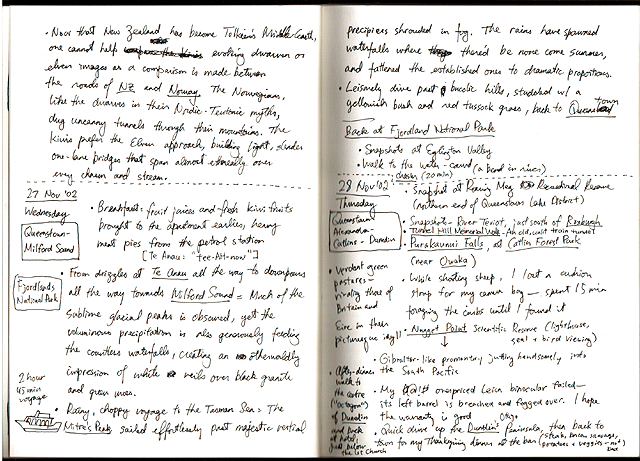 • Now that New Zealand has become Tolkien's Middle Earth,
one cannot help evoking dwarven or
elven images as a comparison is made between
the roads of NZ and Norway. The Norwegians,
like the dwarves in their Nordic-Teutonic myths,
dug uncanny tunnels through their mountains. The
kiwis prefer the Elven approach, building light, slender
one-lane bridges that span almost ethereally over
every chasm and stream.
27 Nov '02
Wednesday
Queenstown -
Milford Sound
• Breakfast: fruit juices and fresh kiwi fruits
brought to the apartment earlies, heavy
meat pies from the petrol station
[Te Anau: "tee-AH-now"]
Fjordlands
National Park
• From drizzles at Te Anau all the way to downpours
all the way towards Milford Sound = Much of the
sublime glacial peaks is obscured, yet the
voluminous precipitation is also generously feeding
the countless waterfalls, creating an otherworldly
impression of white veils over black granite
and green moss.
2 hour
45 min
voyage
• Rainy, choppy voyage to the Tasman Sea = The
Mitre Peak sailed effortlessly past majestic vertical
precipices shrouded in fog. The rains have spawned
waterfalls where there'd be none come summer,
and fattened the established ones to dramatic proportions.
• Leisurely drive past bucolic hills, studded w/ a
yellowish bush and red tussock grass, back to Queenstown
Back at Fjordland National Park
• Snapshots at Eglinton Valley
• Walk to the water-carved (a bend in river)
chasm (20 min)
28 Nov '02
Thursday
Queenstown -
Alexandra -
Catlins - Dunedin
• Snapshot at Roaring Meg Recreational Reserve
(northern end of Queenstown Lake District)
• Snapshots - River Teviot, just south of Roxburgh
• Tunnel Hill Memorial Walk - An old, unlit train tunnel
• Purakaunui Falls, at Catlin Forest Park
(near Owaka)
• Verdant green
pastures -
rivaling those of
Britain and
Eire in their
picturesque idyll
• While shooting sheep, I lost a cushion
strap for my camera bag - spent 15 min
foraging the curbs until I found it
• Nugget Point Scientific Reserve (lighthouse,
seal + bird viewing)
Gibraltar-like promontory jutting handsomely into
the South Pacific
• After-dinner
walk to
the centre
("octagon")
of Dunedin
and back
at hotel,
just below
the 1st Church
• My overpriced Leica binocular failed -
its left barrel is breached and fogged over. I hope
the warranty is good
• Quick drive up the Dunedin's Otago Peninsula, then back to
town for my Thanksgiving dinner at the bar (steak, bacon, sausage,
potatoes + veggies - not bad